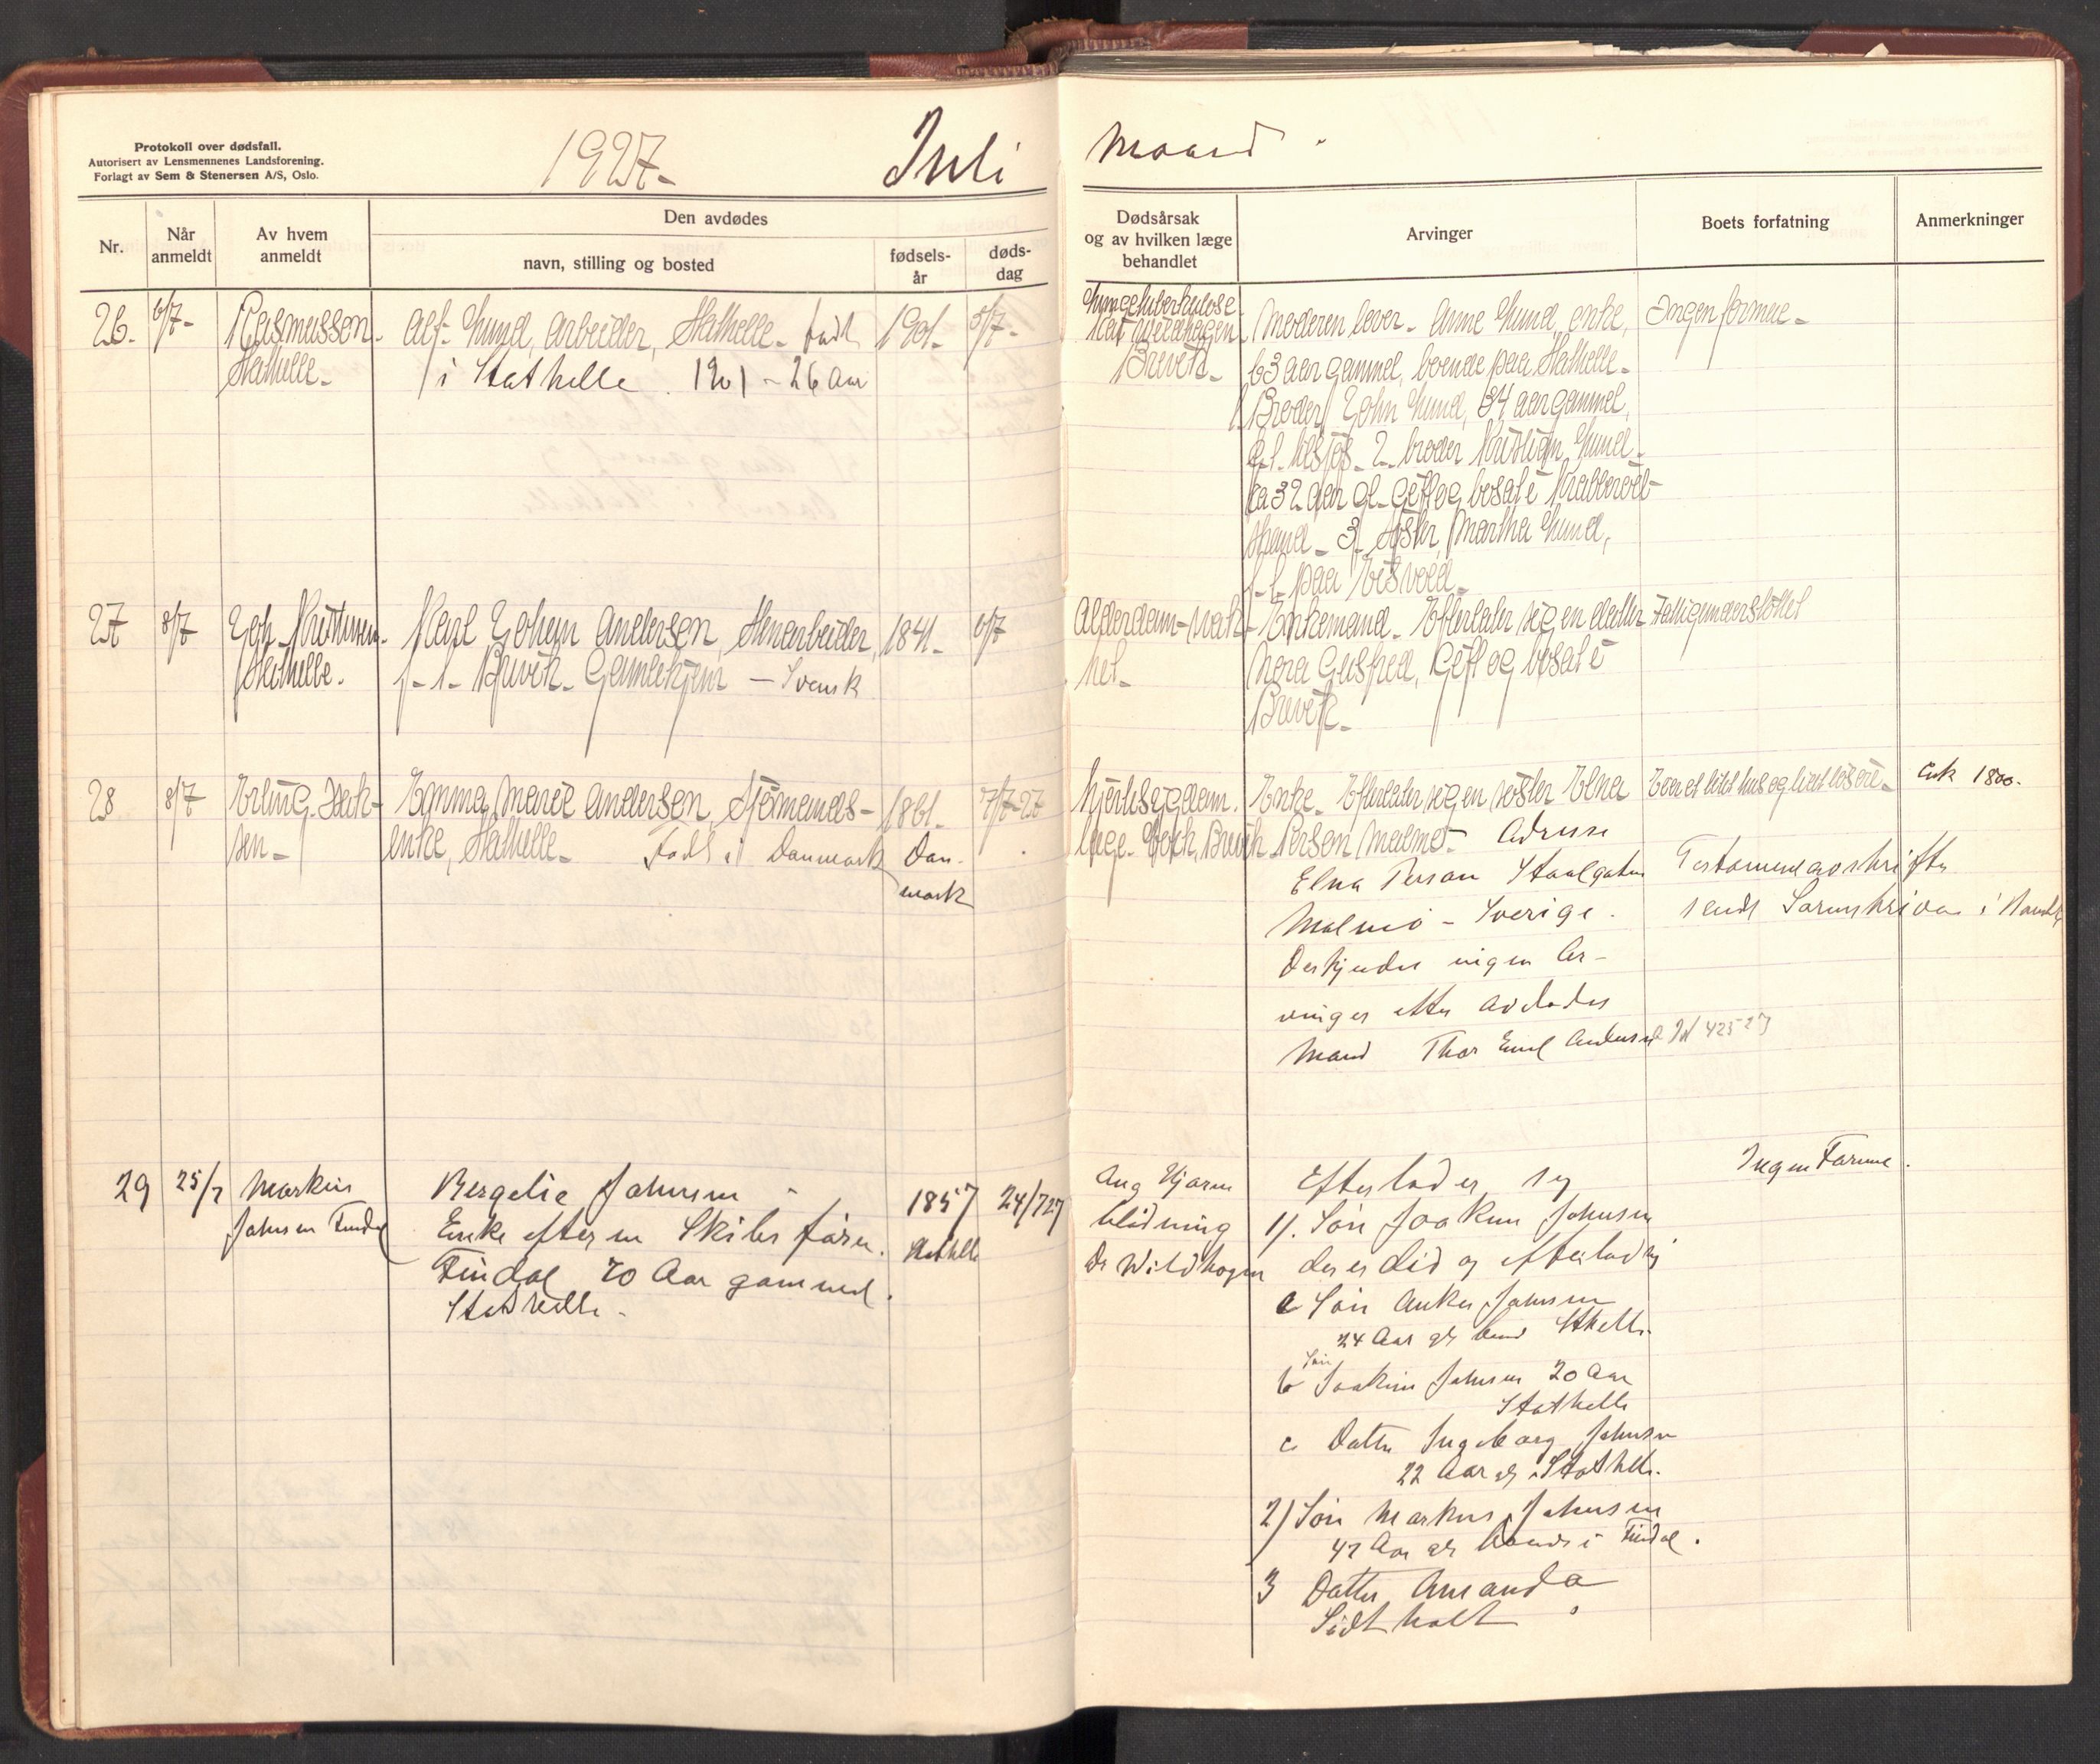 Protokoll over dødsfall.
Autorisert av Lensmennenes Landsforening.
Forlagt av Sem & Stenersen A/S, Oslo.
1927.
Juli
Maaned.
Nr.
Når anmeldt
Av hvem anmeldt
Den avdødes
navn, stilling og bosted
fødsels-
år
døds-
dag
Dødsårsak
og av hvilken læge
behandlet
Arvinger
Boets forfatning
Anmerkninger
26. 6/7- Rasmussen Alf Lund, Arbeider, Stathelle. født 1901. 5/7-
Stathelle. i Stathelle. 1901 - 26 Aar
Lungetuberkulose
Brevik.
Moderen lever. Anne Lund, enke,
63 aar gammel, boende paa Stathelle.
Broder John Lund, 34 aar gammel,
2. broder Kristian Lund
ca 32 aar gl. Gift og bosat i
3. Søster, Martha Lund,
paa
Ingen formue.
27 8/7 Joh. Karl Johan Andersen, Stenarbeider, 1841. 6/7
Stathelle. Brevik. - Svensk
Alderdom-svak-
het.
Enkemand. Efterlater sig en datter
Nora Gusfred, Gift og bosat i
Brevik.
Fattigunderstøttet
28 8/7 Erling Isak- Emma Marie Andersen, Sjømands- 1861. 7/7-27
sen. enke, Stathelle. Født i Danmark Dan-
mark
Hjertesygdom.
læge Brevik
Enke. Efterlater sig en søster Elna
Person Malmø. Adresse
Elna Person
Malmø - Sverige.
Der kjendes ingen Ar-
vinger etter avdødes
Mand Thor Emil Andersen
Eier et litet hus og litet løsøre.
Testament avskrifter
sendt Sorenskriveren i
425 27
ca kr 1800.
29 25/7 Markus Bergelie Johnsen 1857 24/7 27
Johnsen Findal Enke efter en Skibsfører. Stathelle
Findal 70 Aar gammel.
Stathelle.
Ang Hjerne
blødning
Dr Wildhagen
Efterlader sig
1). Søn Joakim Johnsen
der er død og efterlod sig
a Søn Anker Johnsen
24 Aar gl
b Søn Joakim Johnsen 20 Aar
Stathelle
c Datter Ingeborg Johnsen
22 Aar gl Stathelle.
2) Søn Markus Johnsen
47 Aar gl boende i Findal.
3 Datter Amanda
Ingen Formue.